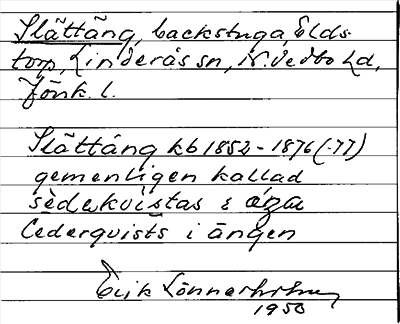 Slättäng, backstuga, Elds-
torp, Linderås sn, N. Vedbo hd,
Jönk. l.
Slättäng kb 1852 - 1876 (-77)
gemenligen kallad
i ängen
Cederqvists i ängen
Erik Lönnerholm
1950